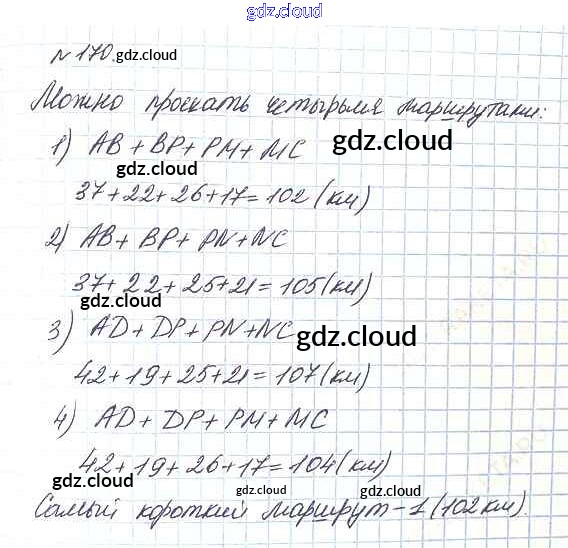 gdz.cloud
№ 170. gdz.cloud
Можно проехать четырьмя маршрутами:
gdz.cloud
1) AB + BP + PM + MC gdz.cloud
gdz.cloud
37+22+26+17=102 (км)
2) AB + BP + PN + NC
gdz.cloud
37+22+25+21=105 (км)
gdz.cloud
3) AD + DP + PN + NC gdz.cloud
42+19+25+21=107 (км)
gdz.cloud
4) AD + DP + PM + MC
42+19+26+17=104 (км)
gdz.cloud gdz.cloud gdz.cloud
Самый короткий маршрут – 1 (102 км).